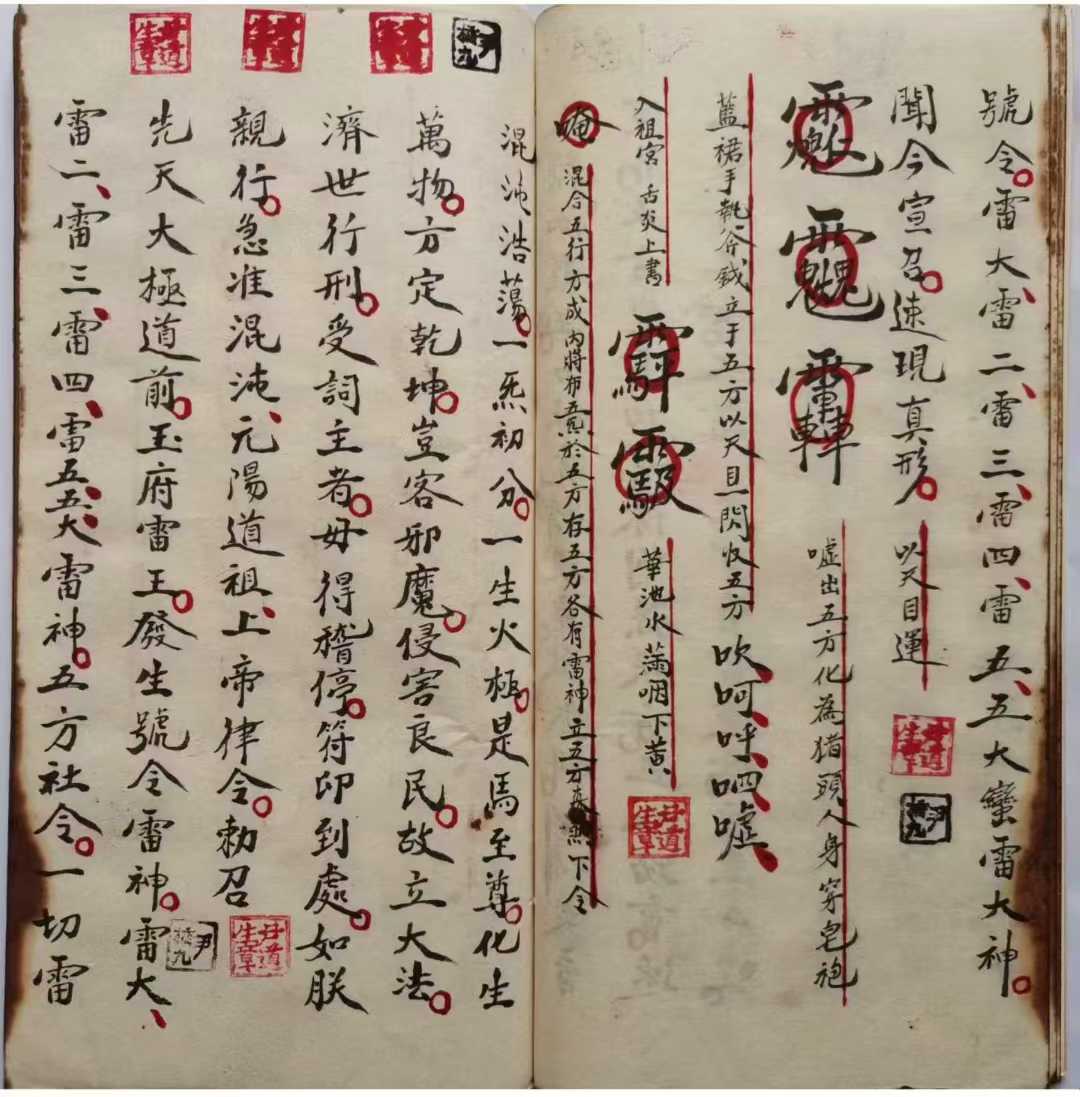 號令。雷大、雷二、雷三、雷四、雷五、五大蠻雷大神。
聞今宣召。速現真形。以天目運
噓出五方化為猪頭人身穿皂袍
蓋裙手執斧鉞立于五方以天目一閃收五方吹、呵、呼、呬、噓、
入祖宮 舌炎上書 華池水滿咽下黃
唵 混合五行方成內將布炁於五方存五方各有雷神立五方下令
混沌浩蕩。一炁初分。一生火極。是馬至尊。化生
萬物。方定乾坤。豈客邪魔。侵害良民。故立大法。
濟世行刑。受詞主者。毋得稽停。符印到處。如朕
親行。急准混沌、元陽道祖、上帝律令。勅召
先天大極道前。玉府雷王。發生號令雷神。雷大、
雷二、雷三、雷四、雷五、五大雷神。五方社令。一切雷